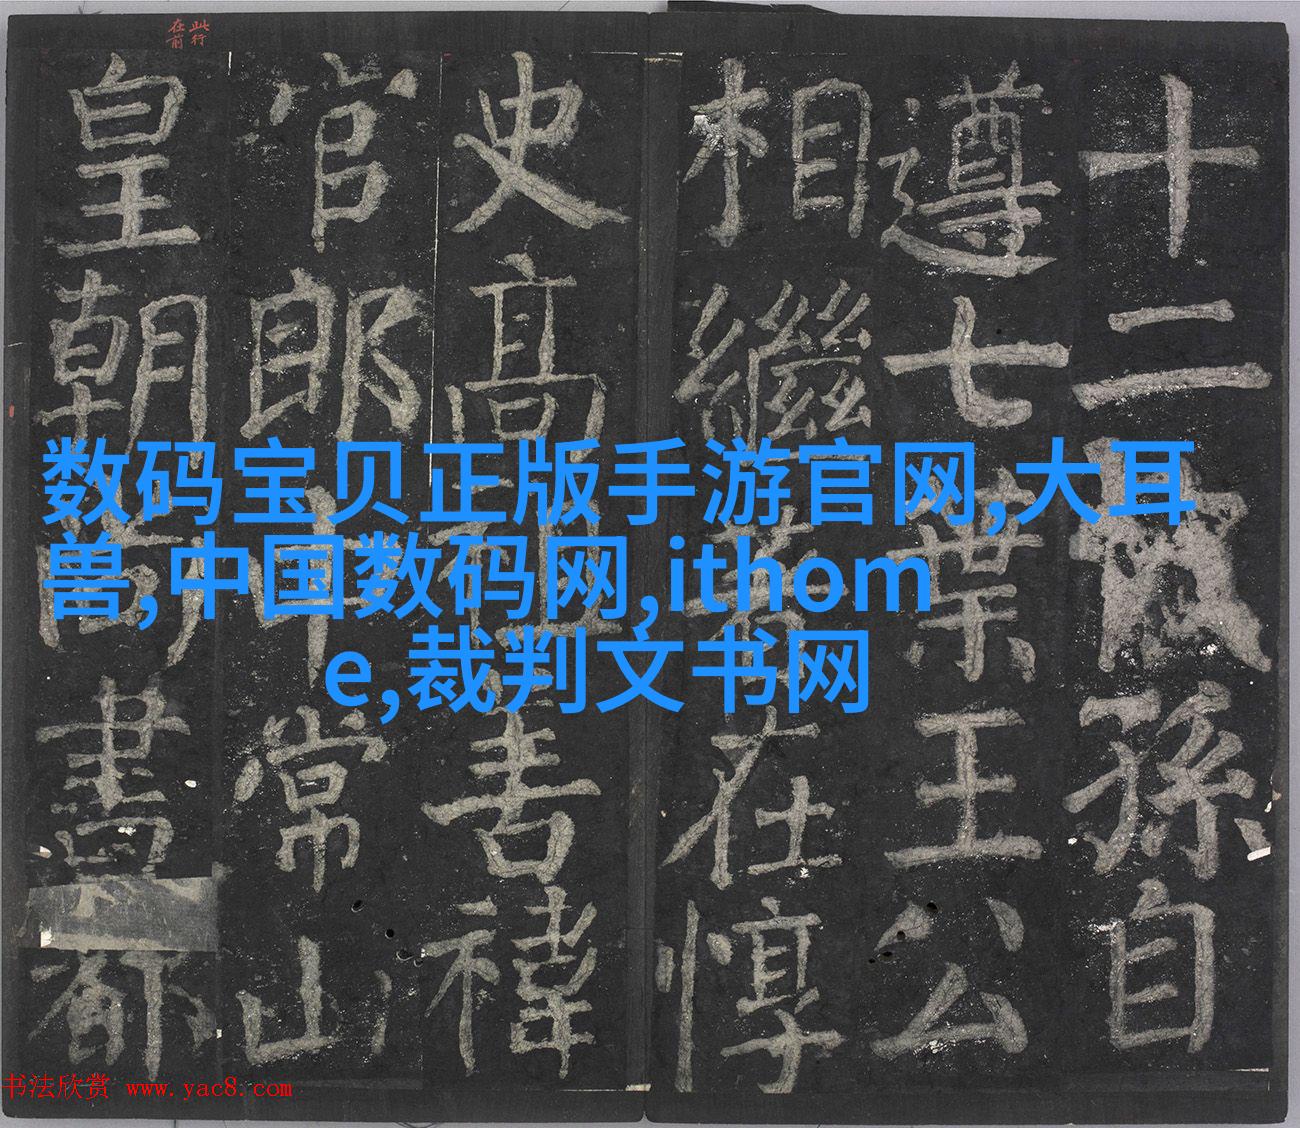 此行
在前
十二孫自
遵七葉王公
相繼在惇
史高祖善禕
官郎中常山
皇朝尚書都
数码宝贝正版手游官网,大耳
兽,中国数码网,ithom
e,裁判文书网
书法欣赏 www.yac8.com